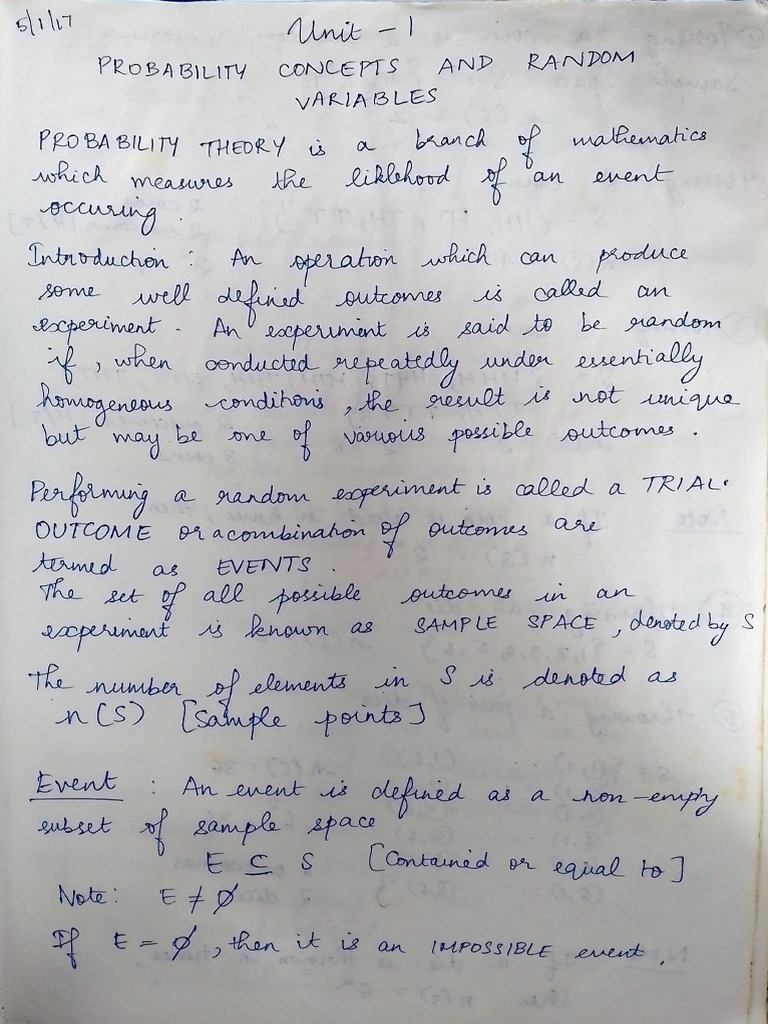 5/1/17
Unit - 1
PROBABILITY CONCEPTS AND RANDOM
VARIABLES
PROBABILITY THEORY is a branch of mathematics
which measures the liklehood of an event
occuring.
Introduction : An operation which can produce
some well defined outcomes is called an
experiment. An experiment is said to be random
if, when conducted repeatedly under essentially
homogeneous conditions, the result is not unique
but may be one of various possible outcomes.
Performing a random experiment is called a TRIAL.
OUTCOME or a combination of outcomes are
termed as EVENTS.
The set of all possible outcomes in an
experiment is known as SAMPLE SPACE, denoted by S
The number of elements in S is denoted as
n(S) [Sample points]
Event : An event is defined as a non-empy
subset of sample space
E ⊆ S [Contained or equal to]
Note: E ≠ ∅
If E = ∅, then it is an IMPOSSIBLE event.